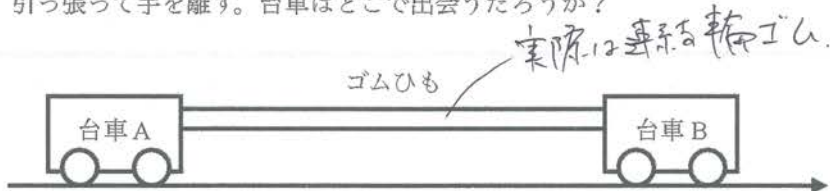 引っ張って手を離す。台車はどこで出会うだろうか？
実際は連結した輪ゴム.
ゴムひも
台車A
台車B